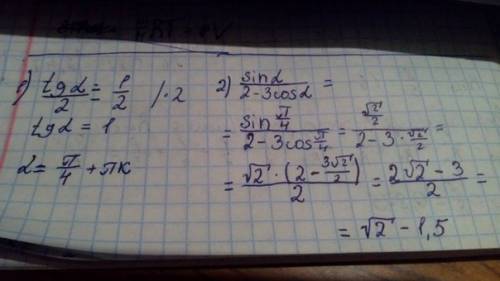 1) tgα/2 = 1/2 /·2
tgα = 1
α = π/4 + πк
2) sinα/(2-3cosα) =
= sin π/4/(2-3cos π/4) = (√2/2)/(2-3·√2/2) =
= √2·(2-3√2/2)/2 = (2√2-3)/2 =
= √2 - 1,5